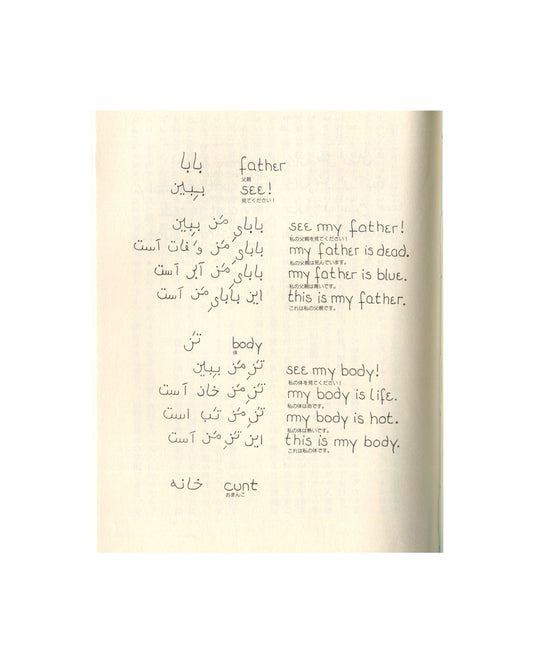 بابا father
父親
ببین see!
見てください！
بابایِ مَن ببین see my father!
私の父親を見てください！
بابایِ مَن وَفات آست my father is dead.
私の父親は死んでいます。
بابایِ مَن آبی آست my father is blue.
私の父親は青いです。
این بابایِ مَن آست this is my father.
これは私の父親です。
تَن body
体
تَنِ مَن ببین see my body!
私の体を見てください！
تَنِ مَن خان آست my body is life.
私の体は命です。
تَنِ مَن تَب است my body is hot.
私の体は熱いです。
این تَنِ مَن آست this is my body.
これは私の体です。
خانه cunt
おまんこ